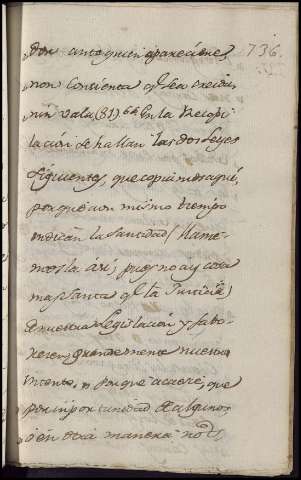 736.
dor ante quien parecieren,
non consienta q.e sea creida
nin vala (31) 64 En la Recopi-
lación se hallan las dos Leyes
siguientes, que copiamos aqui,
porque aun mismo tiempo
indican la Santidad (llame-
mosla asi, pues no ay cosa
mas santa q.e la Justicia)
de nuestra Legislación y favo-
recen grandemente nuestro
intento, " Porque acaece, que
por importunidad de algunos
ó en otra manera nos